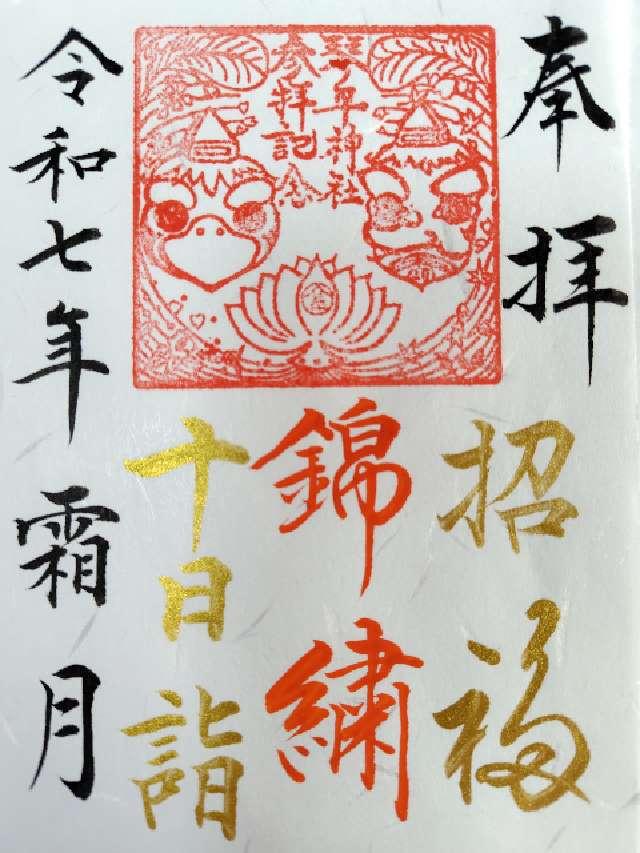 奉拝
招福
琴平神社
参拝記念
錦繍
十日詣
令和七年霜月